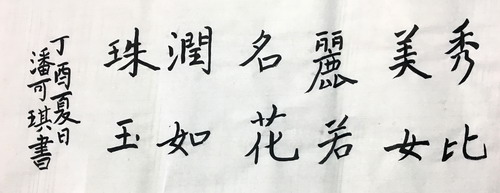 秀比
美女
麗若
名花
潤如
珠玉
丁酉夏日
潘可琪書